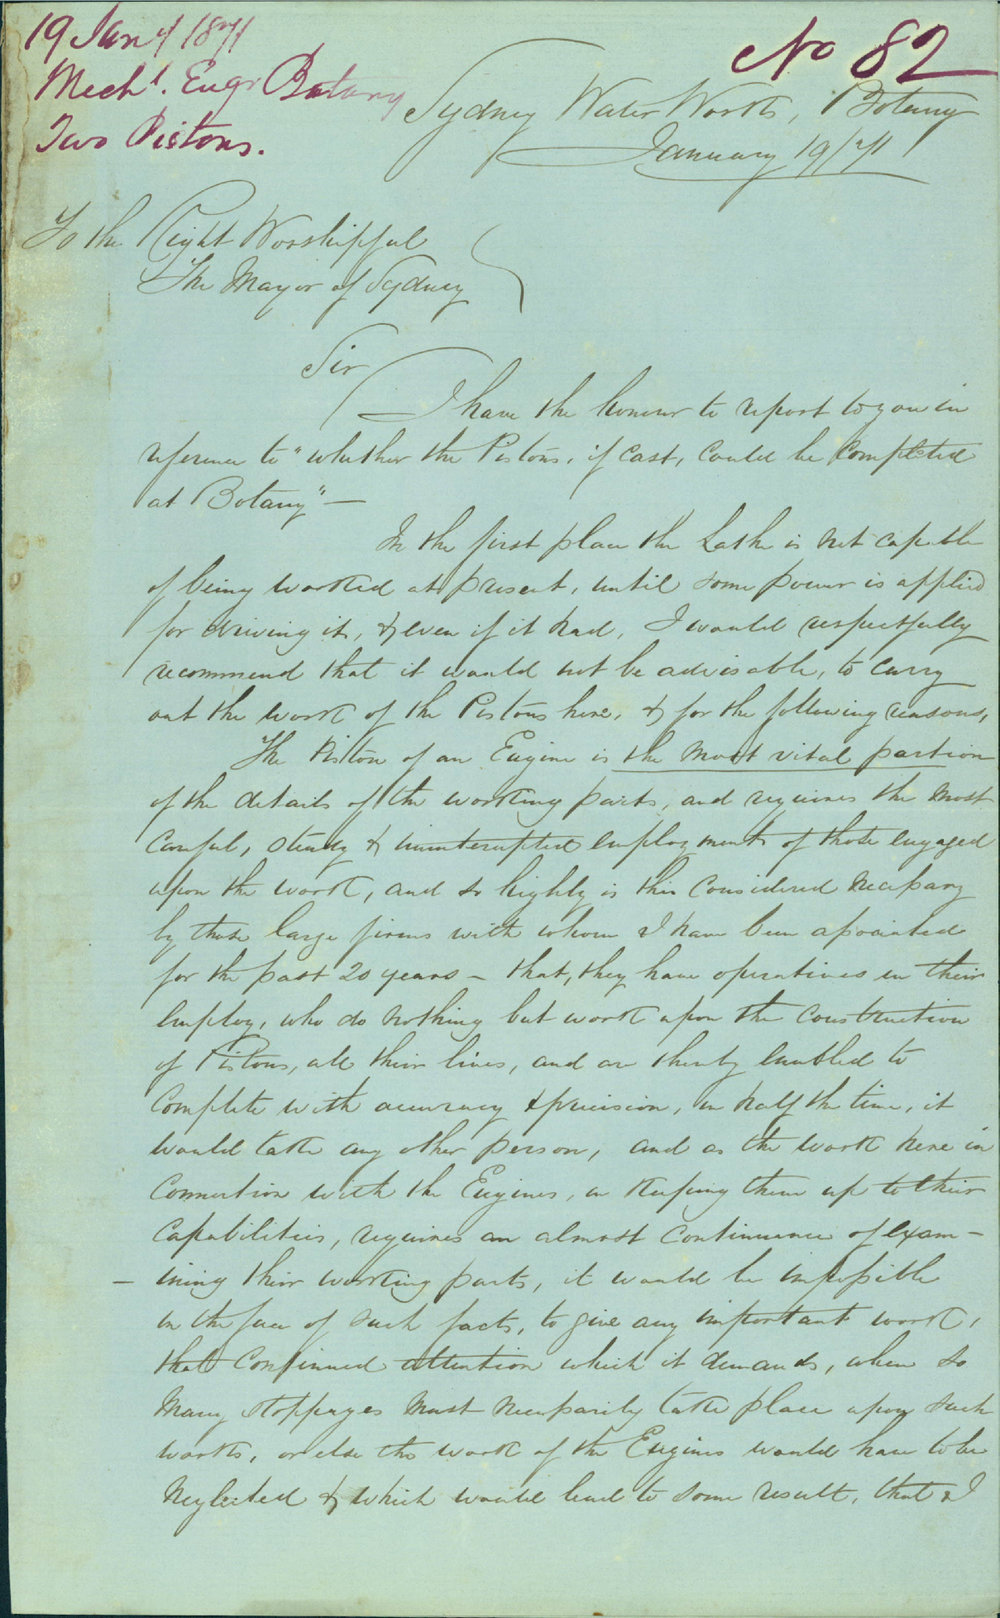 19 Jany 1871
Mechl. Engr Botany
Two Pistons.
No 82
Sydney Water Works, Botany
January 19/71
To the Right Worshipful
The Mayor of Sydney
Sir
I have the honour to report to you in
reference to "whether the Pistons, if cast, could be completed
at Botany" —
In the first place the Lathe is not capable
of being worked at present, until some power is applied
for driving it, & even if it had, I would respectfully
recommend that it would not be advisable, to carry
out the work of the Pistons here, & for the following reasons,
The Piston of an Engine is the most vital portion
of the details of the working parts, and requires the most
careful, steady & uninterupted employment of those engaged
upon the work, and so highly is this considered necessary
by those large firms with whom I have been associated
for the past 20 years – that, they have operatives in their
employ, who do nothing but work upon the construction
of Pistons, all their lives, and are thereby enabled to
complete with accuracy & precision, in half the time, it
would take any other person, and as the work here in
connection with the Engines, in keeping them up to their
capabilities, requires an almost continuance of exam –
– ining their working parts, it would be impossible
in the face of such facts, to give any important work,
that continued attention which it demands, when so
many stoppages must necessarily take place upon such
works, or else the work of the Engines would have to be
neglected & which would lead to some result, that I